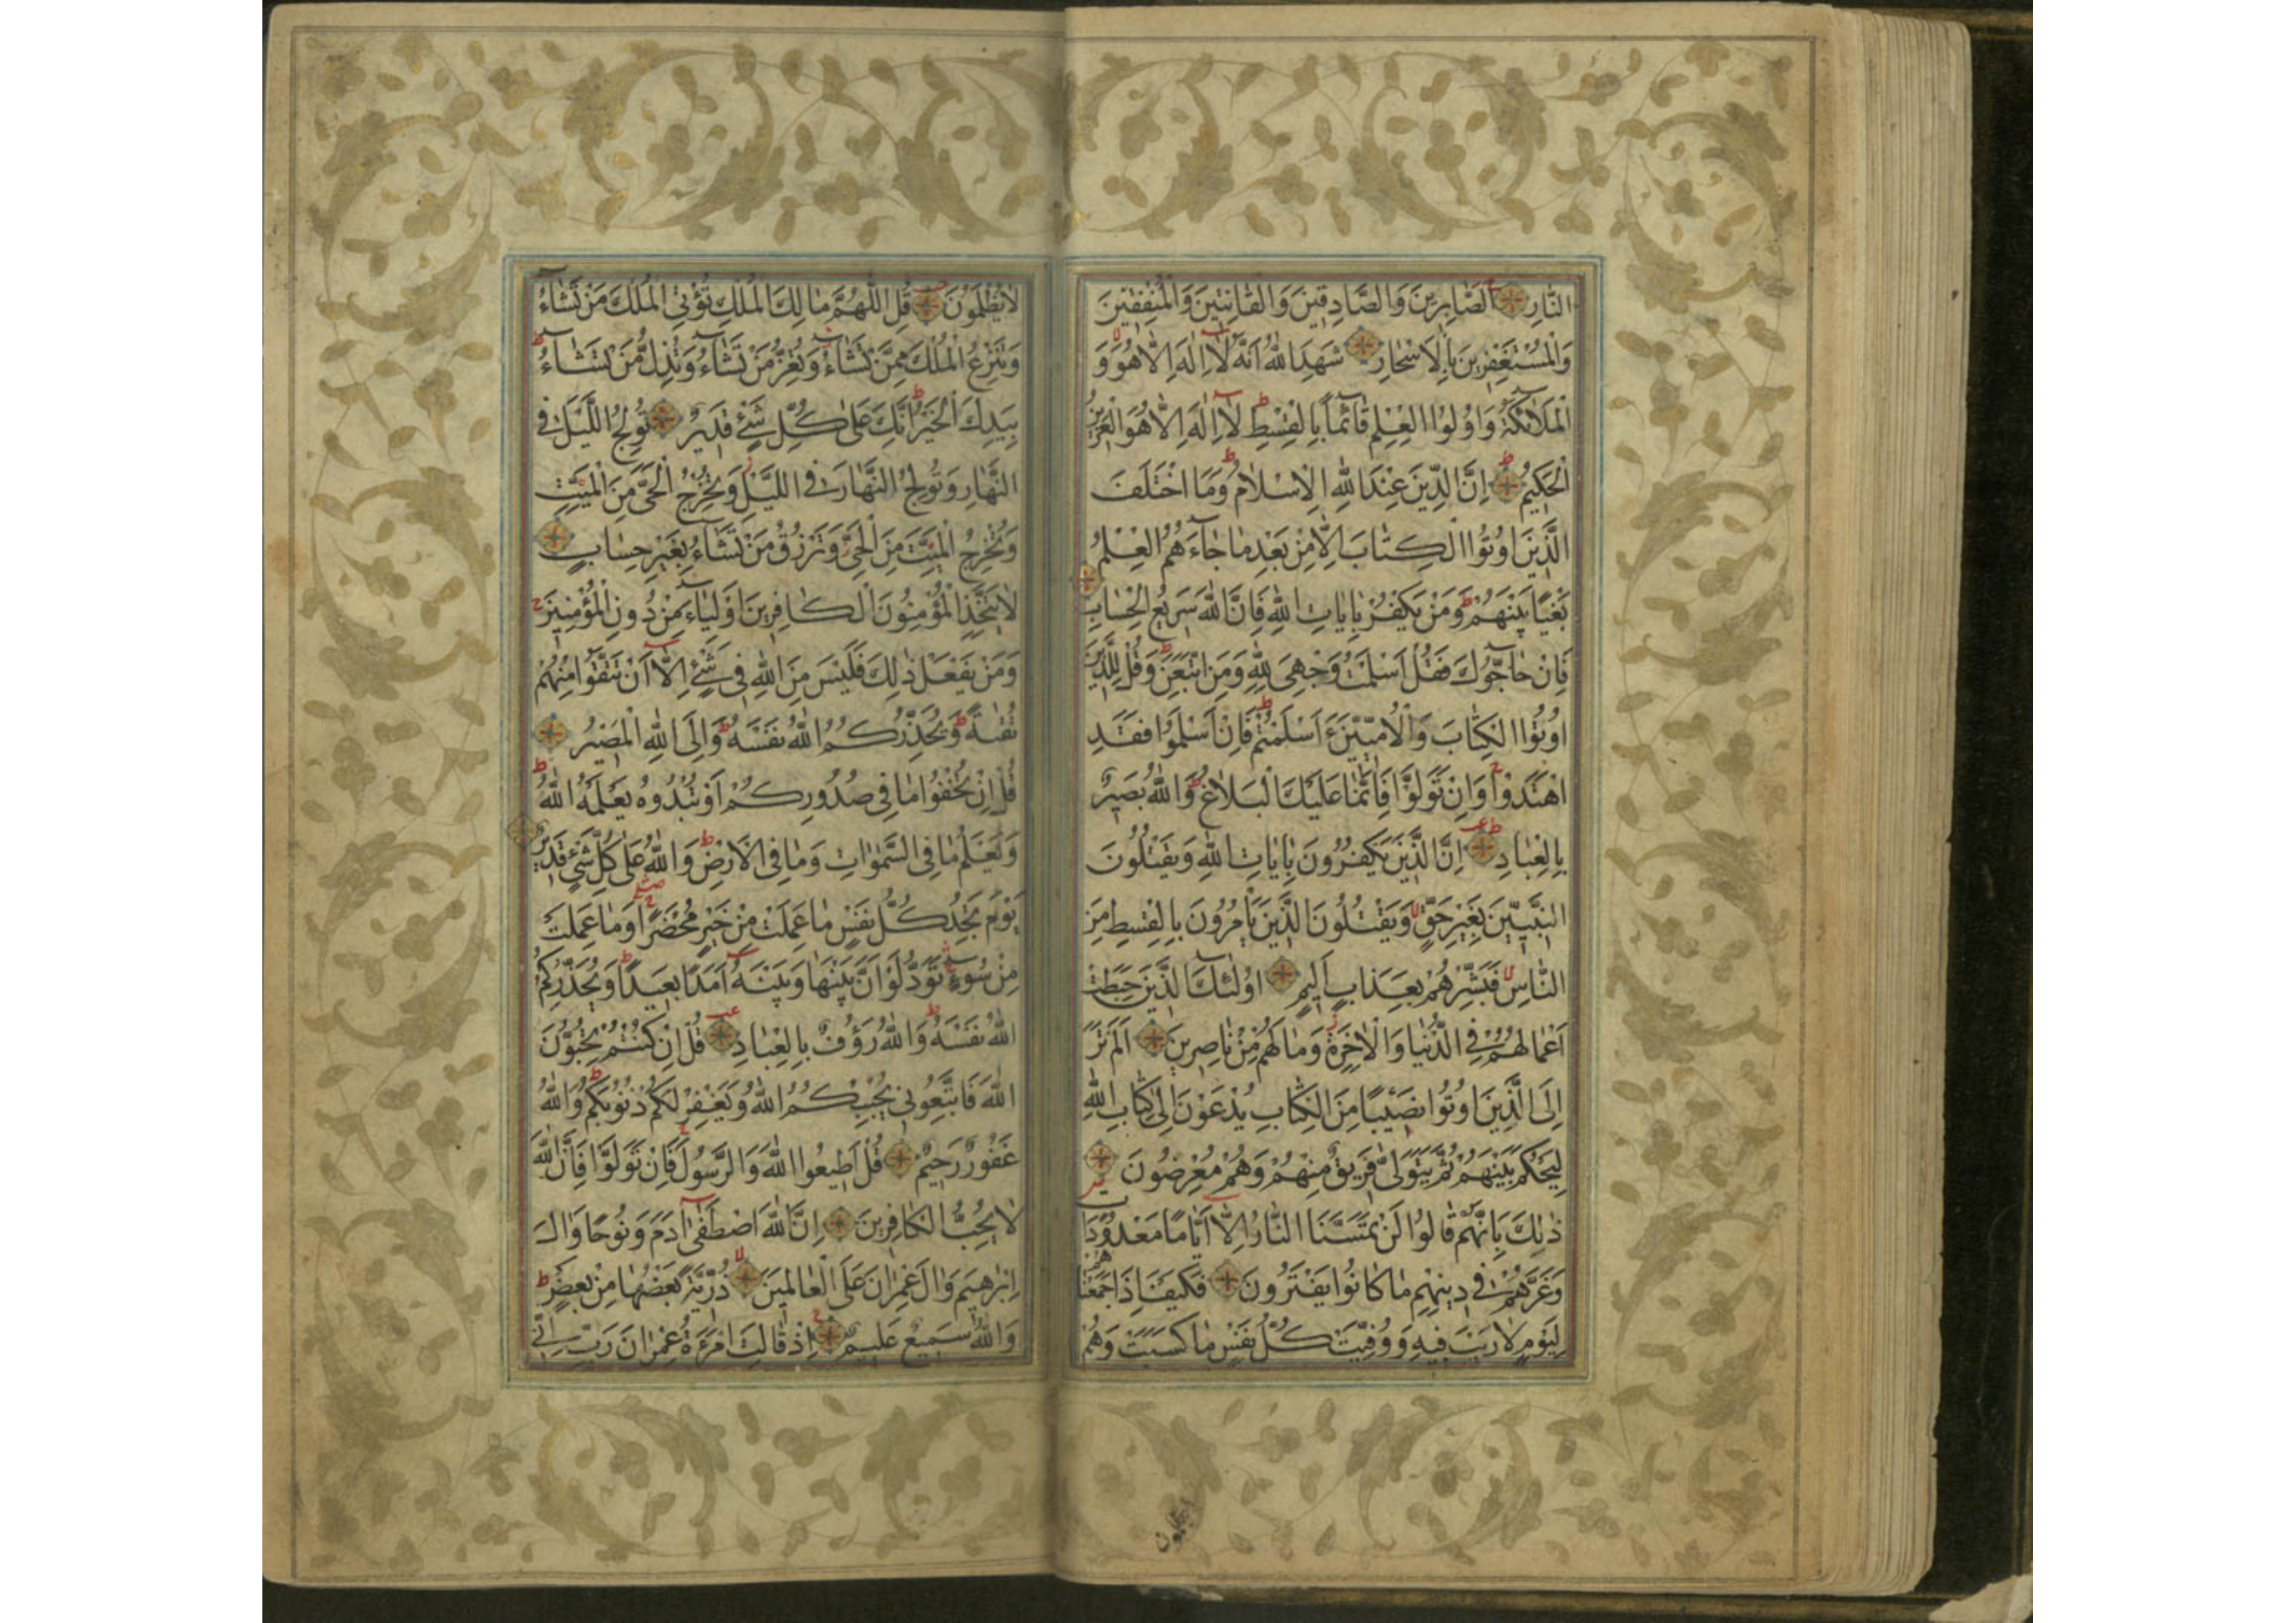 النَّارِ الصَّابِرِينَ وَالصَّادِقِينَ وَالْقَانِتِينَ وَالْمُنْفِقِينَ
وَالْمُسْتَغْفِرِينَ بِالْاَسْحَارِ شَهِدَ اللهُ اَنَّهُ لَا اِلٰهَ اِلَّا هُوَ وَ
الْمَلَائِكَةُ وَاُولُوا الْعِلْمِ قَائِمًا بِالْقِسْطِ لَا اِلٰهَ اِلَّا هُوَ الْعَزِيزُ
الْحَكِيمُ اِنَّ الدِّينَ عِنْدَ اللهِ الْاِسْلَامُ وَمَا اخْتَلَفَ
الَّذِينَ اُوتُوا الْكِتَابَ اِلَّا مِنْ بَعْدِ مَا جَاءَهُمُ الْعِلْمُ
بَغْيًا بَيْنَهُمْ وَمَنْ يَكْفُرْ بِاٰيَاتِ اللهِ فَاِنَّ اللهَ سَرِيعُ الْحِسَابِ
فَاِنْ حَاجُّوكَ فَقُلْ اَسْلَمْتُ وَجْهِيَ لِلّٰهِ وَمَنِ اتَّبَعَنِ وَقُلْ لِلَّذِينَ
اُوتُوا الْكِتَابَ وَالْاُمِّيِّينَ ءَاَسْلَمْتُمْ فَاِنْ اَسْلَمُوا فَقَدِ
اهْتَدَوْا وَاِنْ تَوَلَّوْا فَاِنَّمَا عَلَيْكَ الْبَلَاغُ وَاللهُ بَصِيرٌ
بِالْعِبَادِ اِنَّ الَّذِينَ يَكْفُرُونَ بِاٰيَاتِ اللهِ وَيَقْتُلُونَ
النَّبِيِّينَ بِغَيْرِ حَقٍّ وَيَقْتُلُونَ الَّذِينَ يَأْمُرُونَ بِالْقِسْطِ مِنَ
النَّاسِ فَبَشِّرْهُمْ بِعَذَابٍ اَلِيمٍ اُولٰئِكَ الَّذِينَ حَبِطَتْ
اَعْمَالُهُمْ فِي الدُّنْيَا وَالْاٰخِرَةِ وَمَا لَهُمْ مِنْ نَاصِرِينَ اَلَمْ تَرَ
اِلَى الَّذِينَ اُوتُوا نَصِيبًا مِنَ الْكِتَابِ يُدْعَوْنَ اِلٰى كِتَابِ اللهِ
لِيَحْكُمَ بَيْنَهُمْ ثُمَّ يَتَوَلّٰى فَرِيقٌ مِنْهُمْ وَهُمْ مُعْرِضُونَ
ذٰلِكَ بِاَنَّهُمْ قَالُوا لَنْ تَمَسَّنَا النَّارُ اِلَّا اَيَّامًا مَعْدُودَاتٍ
وَغَرَّهُمْ فِي دِينِهِمْ مَا كَانُوا يَفْتَرُونَ فَكَيْفَ اِذَا جَمَعْنَاهُمْ
لِيَوْمٍ لَا رَيْبَ فِيهِ وَوُفِّيَتْ كُلُّ نَفْسٍ مَا كَسَبَتْ وَهُمْ
لا يظلمون
لَا يُظْلَمُونَ قُلِ اللّٰهُمَّ مَالِكَ الْمُلْكِ تُؤْتِي الْمُلْكَ مَنْ تَشَاءُ
وَتَنْزِعُ الْمُلْكَ مِمَّنْ تَشَاءُ وَتُعِزُّ مَنْ تَشَاءُ وَتُذِلُّ مَنْ تَشَاءُ
بِيَدِكَ الْخَيْرُ اِنَّكَ عَلٰى كُلِّ شَيْءٍ قَدِيرٌ تُولِجُ اللَّيْلَ فِي
النَّهَارِ وَتُولِجُ النَّهَارَ فِي اللَّيْلِ وَتُخْرِجُ الْحَيَّ مِنَ الْمَيِّتِ
وَتُخْرِجُ الْمَيِّتَ مِنَ الْحَيِّ وَتَرْزُقُ مَنْ تَشَاءُ بِغَيْرِ حِسَابٍ
لَا يَتَّخِذِ الْمُؤْمِنُونَ الْكَافِرِينَ اَوْلِيَاءَ مِنْ دُونِ الْمُؤْمِنِينَ
وَمَنْ يَفْعَلْ ذٰلِكَ فَلَيْسَ مِنَ اللهِ فِي شَيْءٍ اِلَّا اَنْ تَتَّقُوا مِنْهُمْ
تُقٰىةً وَيُحَذِّرُكُمُ اللهُ نَفْسَهُ وَاِلَى اللهِ الْمَصِيرُ
قُلْ اِنْ تُخْفُوا مَا فِي صُدُورِكُمْ اَوْ تُبْدُوهُ يَعْلَمْهُ اللهُ
وَيَعْلَمُ مَا فِي السَّمٰوَاتِ وَمَا فِي الْاَرْضِ وَاللهُ عَلٰى كُلِّ شَيْءٍ قَدِيرٌ
يَوْمَ تَجِدُ كُلُّ نَفْسٍ مَا عَمِلَتْ مِنْ خَيْرٍ مُحْضَرًا وَمَا عَمِلَتْ
مِنْ سُوءٍ تَوَدُّ لَوْ اَنَّ بَيْنَهَا وَبَيْنَهُ اَمَدًا بَعِيدًا وَيُحَذِّرُكُمُ
اللهُ نَفْسَهُ وَاللهُ رَؤُفٌ بِالْعِبَادِ قُلْ اِنْ كُنْتُمْ تُحِبُّونَ
اللهَ فَاتَّبِعُونِي يُحْبِبْكُمُ اللهُ وَيَغْفِرْ لَكُمْ ذُنُوبَكُمْ وَاللهُ
غَفُورٌ رَحِيمٌ قُلْ اَطِيعُوا اللهَ وَالرَّسُولَ فَاِنْ تَوَلَّوْا فَاِنَّ اللهَ
لَا يُحِبُّ الْكَافِرِينَ اِنَّ اللهَ اصْطَفٰى اٰدَمَ وَنُوحًا وَاٰلَ
اِبْرٰهِيمَ وَاٰلَ عِمْرَانَ عَلَى الْعَالَمِينَ ذُرِّيَّةً بَعْضُهَا مِنْ بَعْضٍ
وَاللهُ سَمِيعٌ عَلِيمٌ اِذْ قَالَتِ امْرَءَةُ عِمْرٰانَ رَبِّ اِنِّي